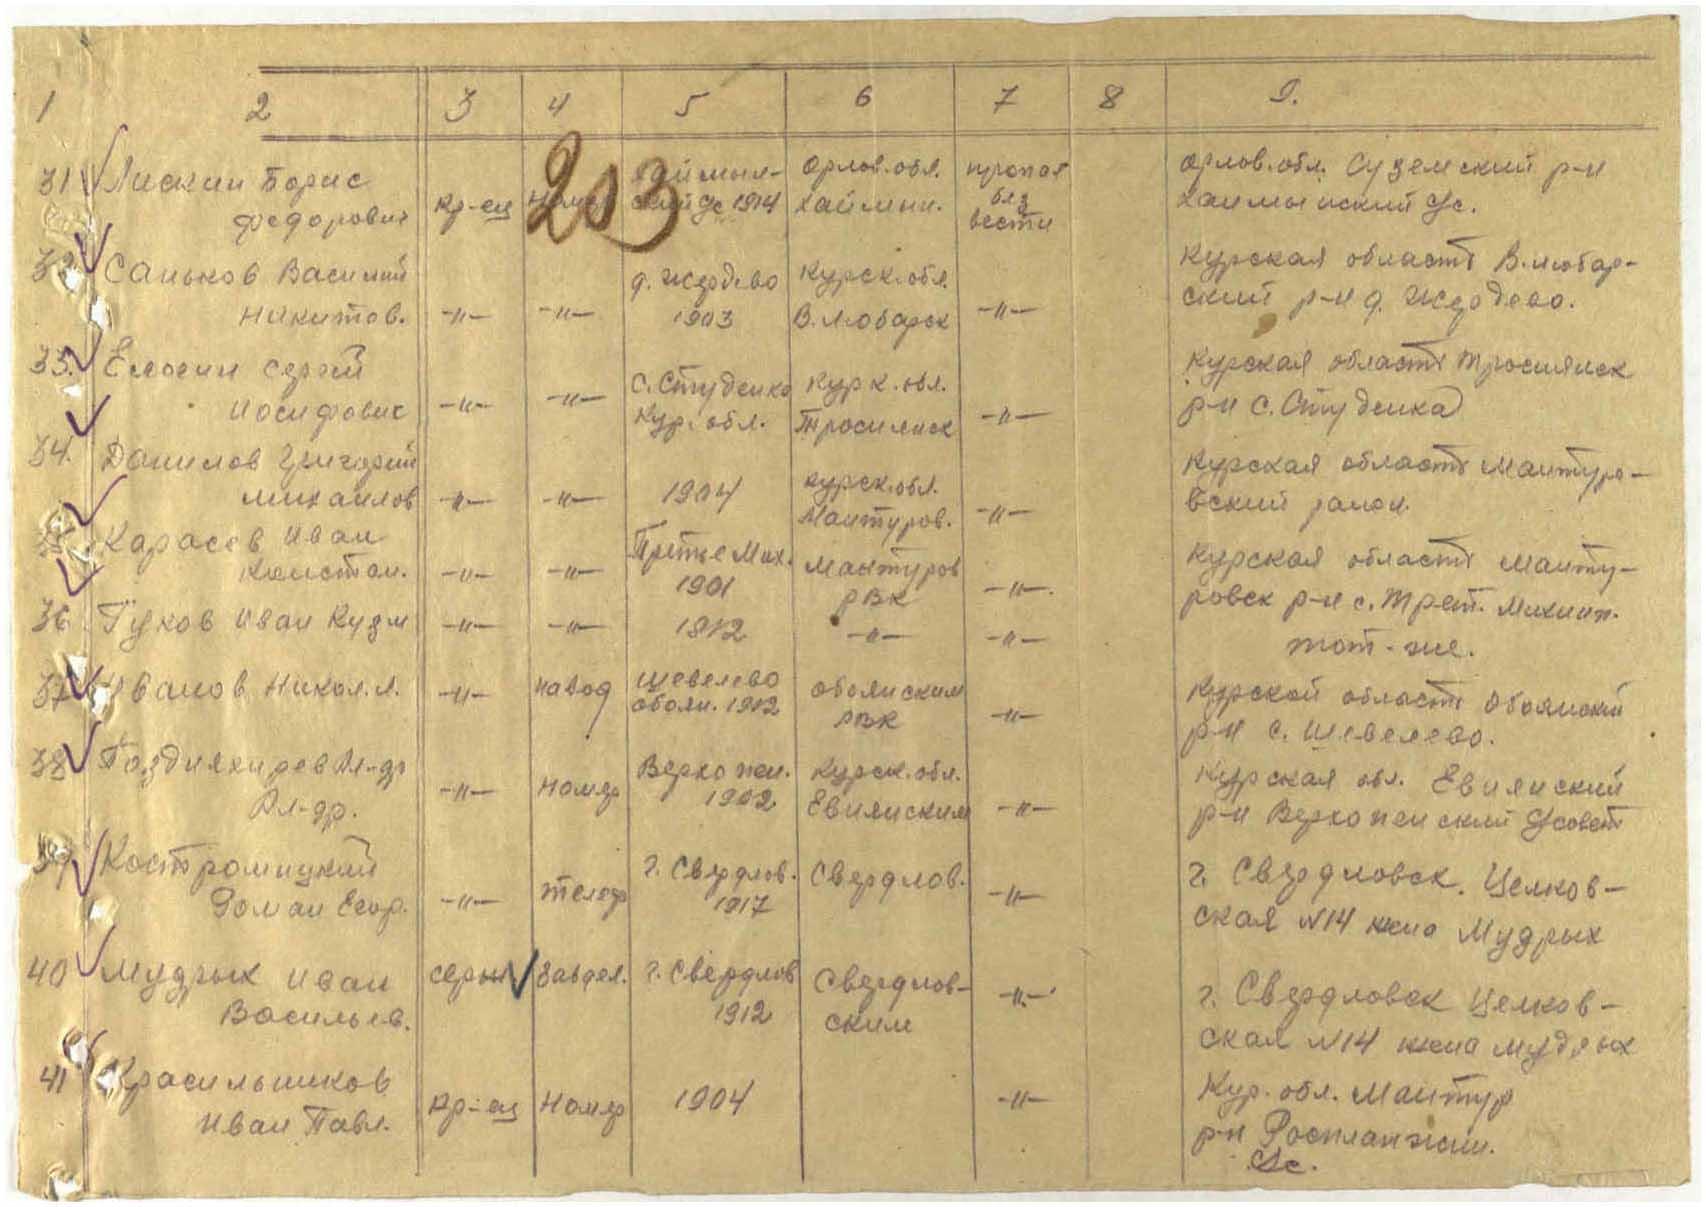 1 2 3 4 5 6 7 8 9.
31 Лискин Борис Федорович кр-ец 203 ский с/с 1914 Орлов. обл. Хаймын. пропал без вести Орлов. обл. Суземский р-н
Хаимынский с/с.
32. Саньков Василий Никитов. -"- -"- д. Жердево 1903 Курск. обл. В. Любарск -"- Курская область В. Любар-
ский р-н д. Жердево.
33. Елосин Сергей Иосифович -"- -"- с. Студенка Кур. обл. Курк. обл. Тросилнск -"- Курская область
р-н с. Студенка
34. Данилов Григорий Михаилов -"- -"- 1904 Курск. обл. Мантуров. -"- Курская область Мантуро-
вский район.
35 Карасев Иван Констан. -"- -"- Третье Мих. 1901 Мантуров РВК -"-. Курская область Манту-
ровск р-н с. Трет.
36 Гуков Иван Кузм -"- -"- 1912 -"- -"- тот-же.
37 Иванов Никол. Л. -"- навод Шевелево обоян. 1912 Обоянским РВК -"- Курской область Обоянский
р-н с. Шевелево.
38 Ал-др Ал-др. -"- номер Верхопен. 1902 Курск. обл. Евнянским -"- Курская обл. Евнянский
р-н Верхопенский с/совет
39 Костромицкий Роман Егор. -"- телеф г. Свердлов. 1917 Свердлов. -"- г. Свердловск. Целков-
ская N14 жена Мудрых
40 Мудрых Иван Васильев. сержн г. Свердлов 1912 Свердлов-
ским -"- г. Свердловск Целков-
ская N14 жена Мудрых
41 Красильников Иван Павл. кр-ец номер 1904 -"- Кур. обл. Мантур
р-н
с/с.